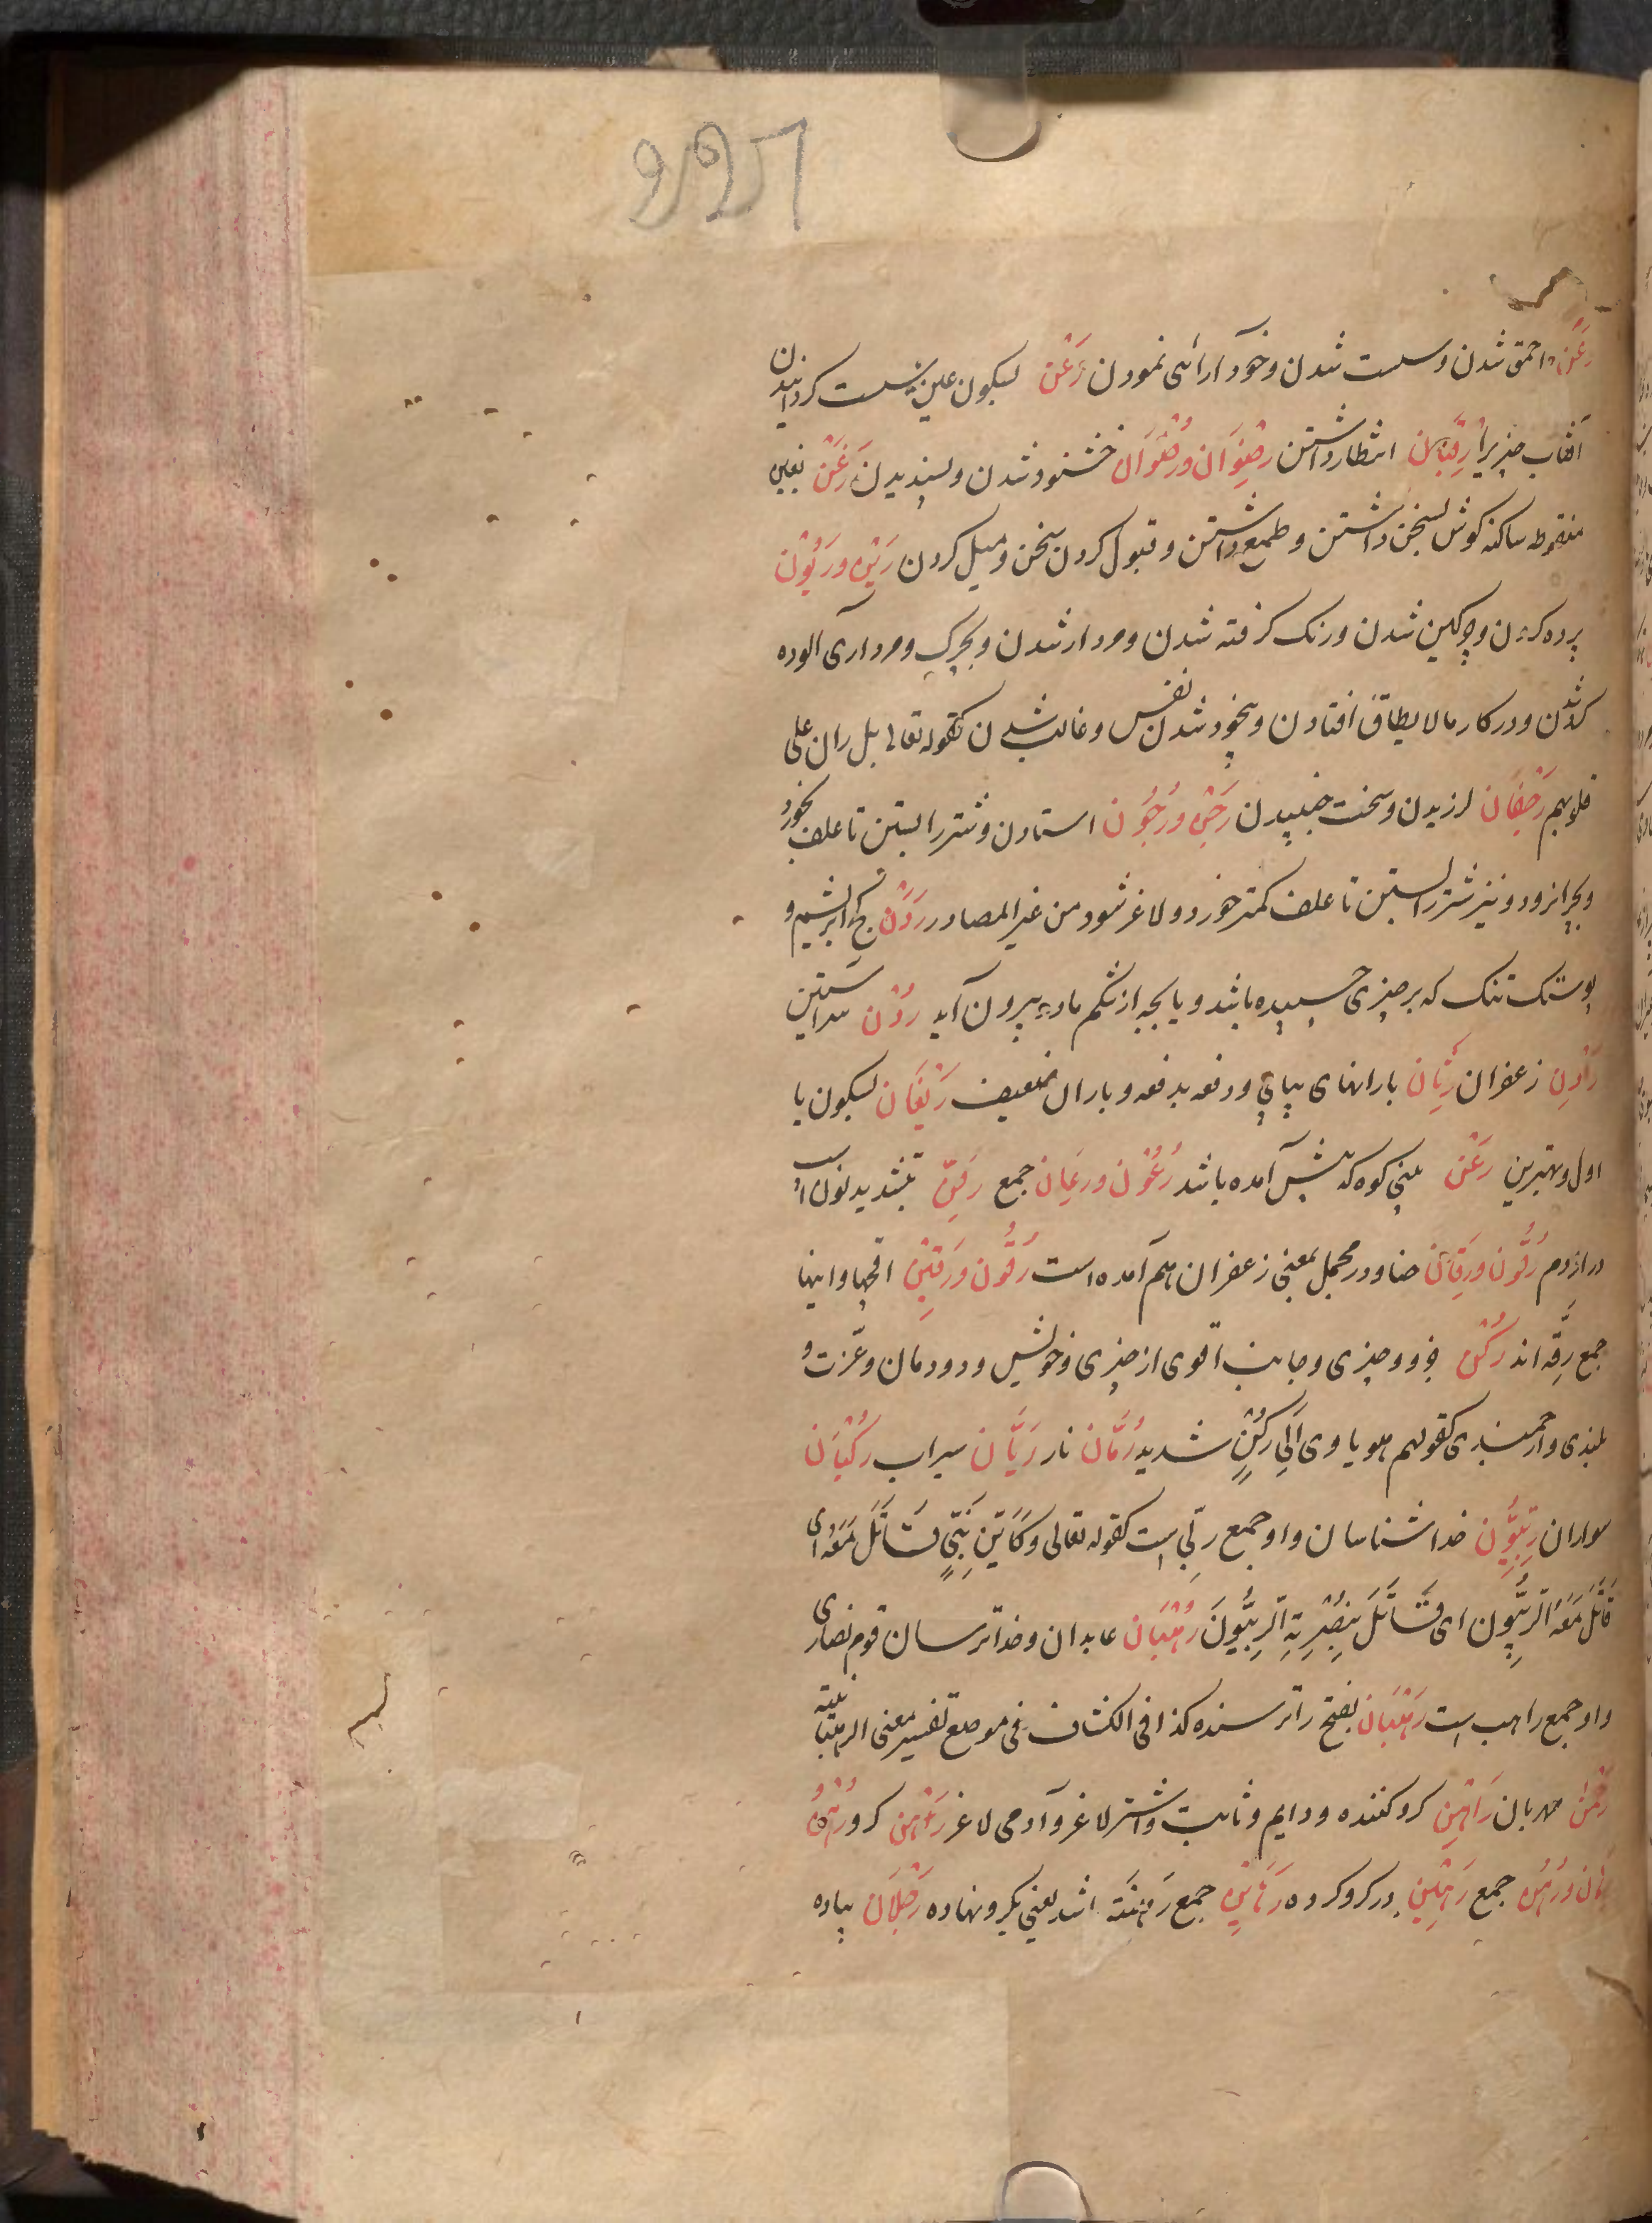 رَعَن احمق شدن و سست شدن و خود آرائی نمودن رَعْن بسکون عین سست کردانیدن
آفتاب چیزیرا رِقبان انتظار داشتن رِضْوَان و رُضْوَان خشنود شدن و پسندیدن رَغْن بغین
منقوطه ساکنه کوش بسخن داشتن و طمع داشتن و قبول کردن سخن و میل کردن رَیْن و رُیُون
پرده کردن و چرکین شدن و زنک کرفته شدن و مردار شدن و بچرک و مرداری آلوده
کردن شدن و در کار مالا یطاق افتادن و بیخود شدن نفس و غالب شدن کقوله تعالی بل ران علی
قلوبهم رَجَفَان لرزیدن و سخت جنبیدن رَجْن و رُجُون استادن و شتر را بستن تا علف بخورد
و بچرا نرود و نیز شتر را بستن تا علف کمتر خورد و لاغر شود من غیر المصادر رَدَن خز ابریشم و
پوستک تنک که بر چیزی چسپیده باشد و با بچه از شکم مادر بیرون آید رُدْن سر آستین
رَادِن زعفران رِثَان بارانهای پیاپی و دفعه بدفعه و باران ضعیف رَیْعَان بسکون یا
اول و بهترین رَعْن بینی کوه که پیش آمده باشد رُعُون و رِعَان جمع رِفَنّ بتشدید نون اسب
دراز دم رَقُون و رِقَان حنا و در مجمل بمعنی زعفران هم آمده است رِقُون و رِقِین اقچها و اینها
جمع رِقّه اند رُکْن جزو چیزی و جانب اقوی از چیزی و خویش و دودمان و عزت و
بلندی و ارجمندی کقولهم هو یاوی الی رُکْنٍ شدید رُمَّان نار رَیَّان سیراب رُکْبَان
سواران رِبِّیُّون خدا شناسان و او جمع ربّی است کقوله تعالی وکَأَیّن نَبیٍّ قَاتَلَ مَعَهُ ای
قَاتَلَ مَعَهُ الرِّبِّیُّون ای قَاتَلَ بِنُصْرِتِهِ الرِّبِّیُّونَ رُهْبَان عابدان و خدا ترسان قوم نصاری
و او جمع راهب است رَهْبَان بفتح را ترسنده کذا فی الکشاف فی موضع تفسیر معنی الرهبانیة
رَحْمٰن مهربان رَاهِن کرو کننده و دایم و ثابت و اشتر لاغر و آدمی لاغر رَهْن کرو رُهُن
رِهَان و رُهُن جمع رَهِین در کرو کرده رَهَایِن جمع رَهِینَة اند یعنی بکرو نهاده رَجْلَان پیاده